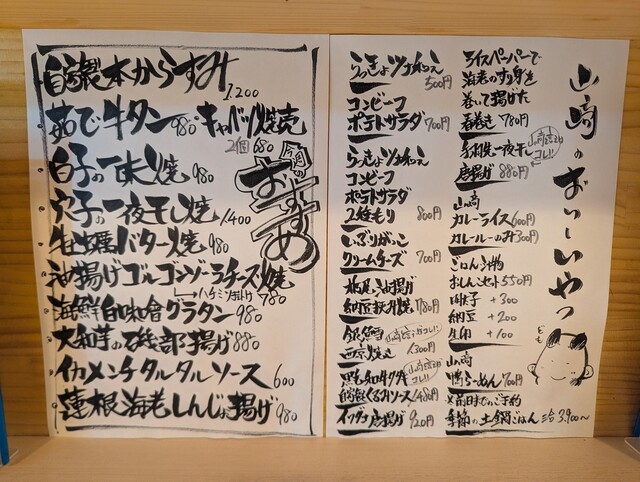 自家製本からすみ 1,200
茹で牛タン 980 キャベツ焼売
2個 680
今月のおすすめ
白子の一味焼 980
穴子の一夜干し焼 1,400
牡蠣バター焼 980
油揚げゴルゴンゾーラチーズ焼
ハチミツ掛け 780
海鮮白味噌グラタン 980
大和芋の磯部揚げ 880
イカメンチタルタルソース 600
蓮根海老しんじょ揚げ 980
山﨑のおいしいやつ
らっきょツナ和え
500円
コンビーフ
ポテトサラダ 700円
らっきょツナ和え
コンビーフ
ポテトサラダ
2種もり 800円
いぶりがっこ
クリームチーズ 700円
栃尾油揚げ
納豆挟み焼 780円
銀鱈
西京焼き 1,300円
黒毛和牛
1,480円
イワダコ唐揚げ 920円
ライスペーパーで
海老のすり身を
巻いて揚げた
春巻き 780円
一夜干し
唐揚げ 880円
山﨑
カレーライス 600円
カレールーのみ 300円
ごはん 汁物
おしんこセット 550円
明太子 +300
納豆 +200
生卵 +100
ども
山﨑
鴨らーめん 700円
×前日までのご予約
季節の土鍋ごはん 3,900〜